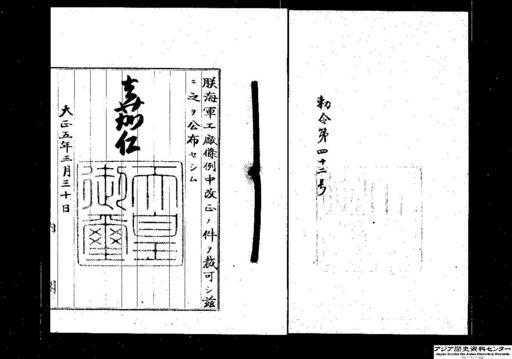 勅令第四十二号
朕海軍工廠條例中改正ノ件ヲ裁可シ茲
ニ之ヲ公布セシム
嘉仁
天皇御璽
大正五年三月三十日
内閣
アジア歴史資料センター
Japan Center for Asian Historical Records